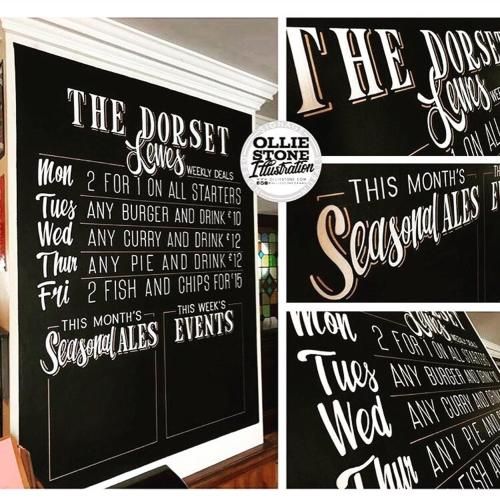 THE DORSET
Lewes WEEKLY DEALS
Mon 2 FOR 1 ON ALL STARTERS
Tues ANY BURGER AND DRINK £10
Wed ANY CURRY AND DRINK £12
Thur ANY PIE AND DRINK £12
Fri 2 FISH AND CHIPS FOR £15
THIS MONTH'S
Seasonal ALES
THIS WEEK'S
EVENTS
OLLIE
STONE
Illustration
WWW.OLLIESTONE.COM
THE DORSET
Lewes WEE
1 ON ALL
THIS MONTH'S
Seasonal ALES
Mon 2 FOR 1 ON ALL STARTERS
Tues ANY BURGER AND
Wed ANY CURRY AND
Thur ANY PIE AN
FISH